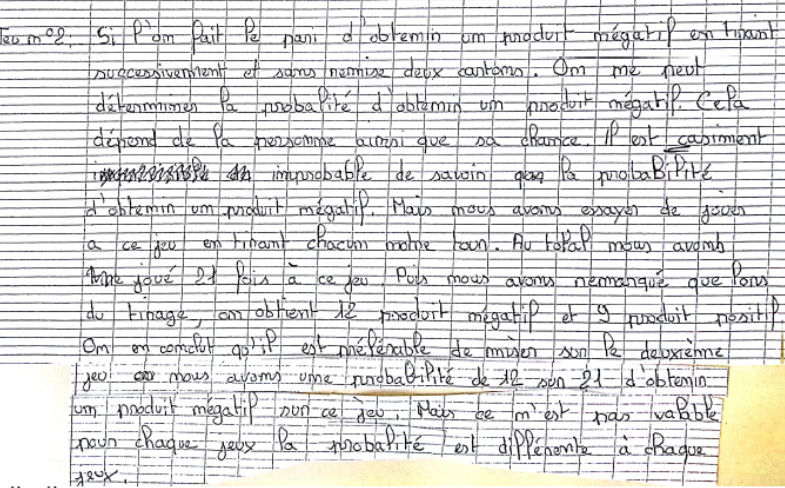 Jeu n°2: Si l'on fait le pari d'obtenir un produit négatif en tirant
successivement et sans remise deux cartons. On ne peut
déterminer la probalité d'obtenir un produit négatif. Cela
dépend de la personne ainsi que sa chance. Il est casiment
improbable de savoir la probabilité
d'obtenir un produit négatif. Mais nous avons essayer de jouer
a ce jeu en tirant chacun notre tour. Au total nous avons
joué 21 fois à ce jeu. Puis nous avons remarqué que lors
du tirage, on obtient 12 produit négatif et 9 produit positif
On en conclut qu'il est préférable de miser sur le deuxième
jeu ou nous avons une probabilité de 12 sur 21 d'obtenir
un produit négatif sur ce jeu. Mais ce n'est pas valable
pour chaque jeux la probalité est différente à chaque
jeux.